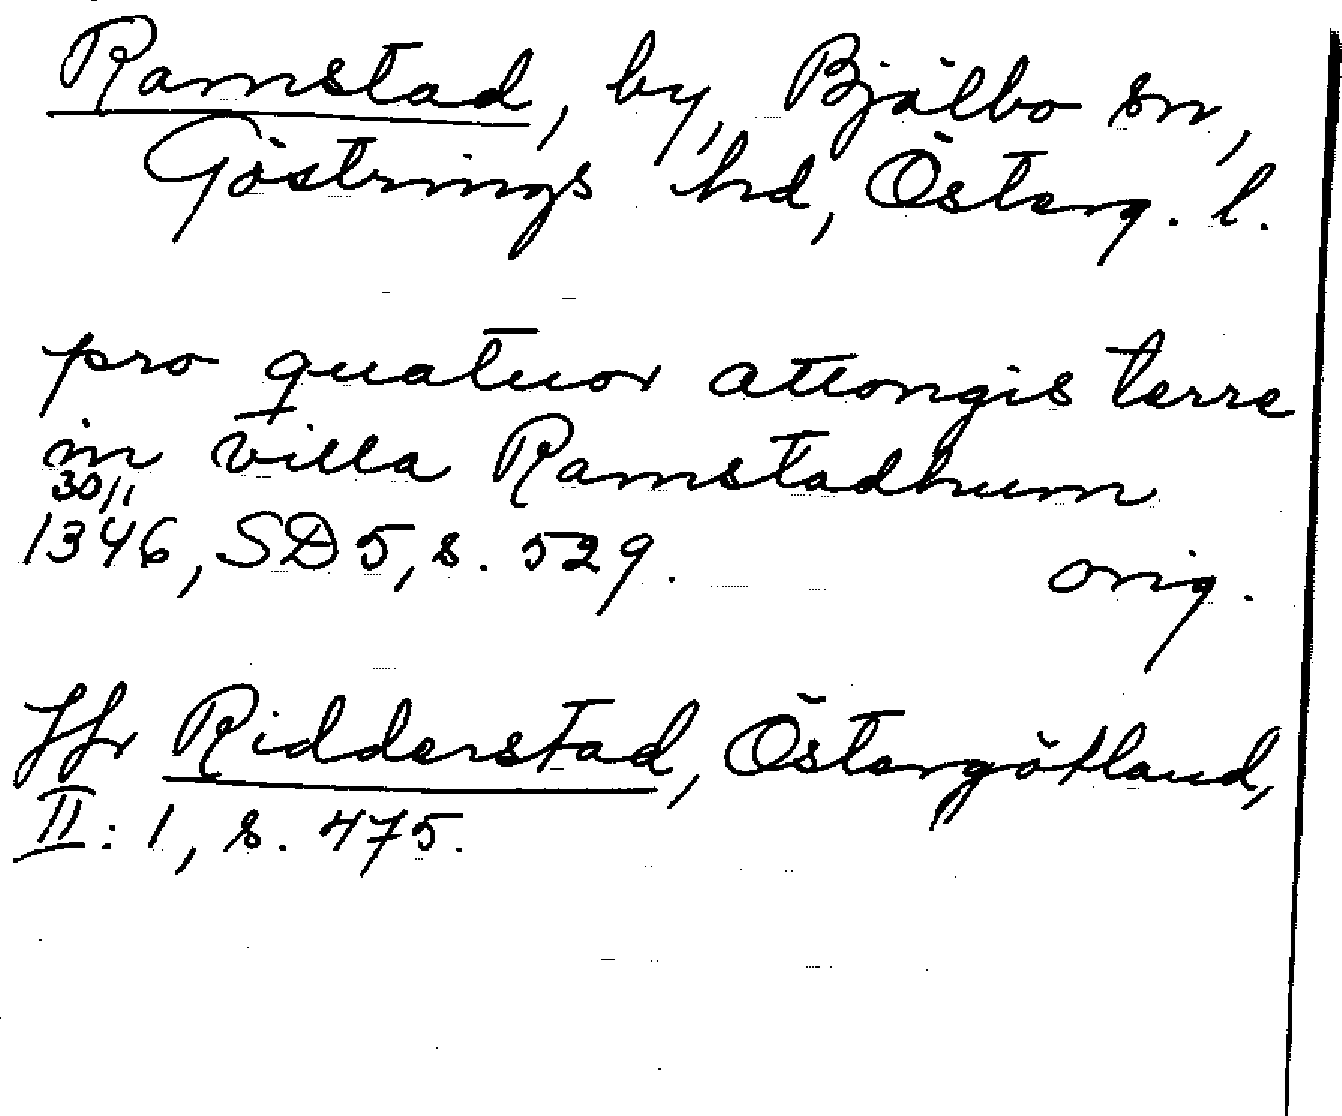 Ramstad, by, Bjälbo sn,
Göstrings hd, Österg. l.
pro quatuor attongis terre
in villa Ramstadhum
30/11
1346, SD 5, s. 529. orig.
Jfr Ridderstad, Östergötland,
II: 1, s. 475.